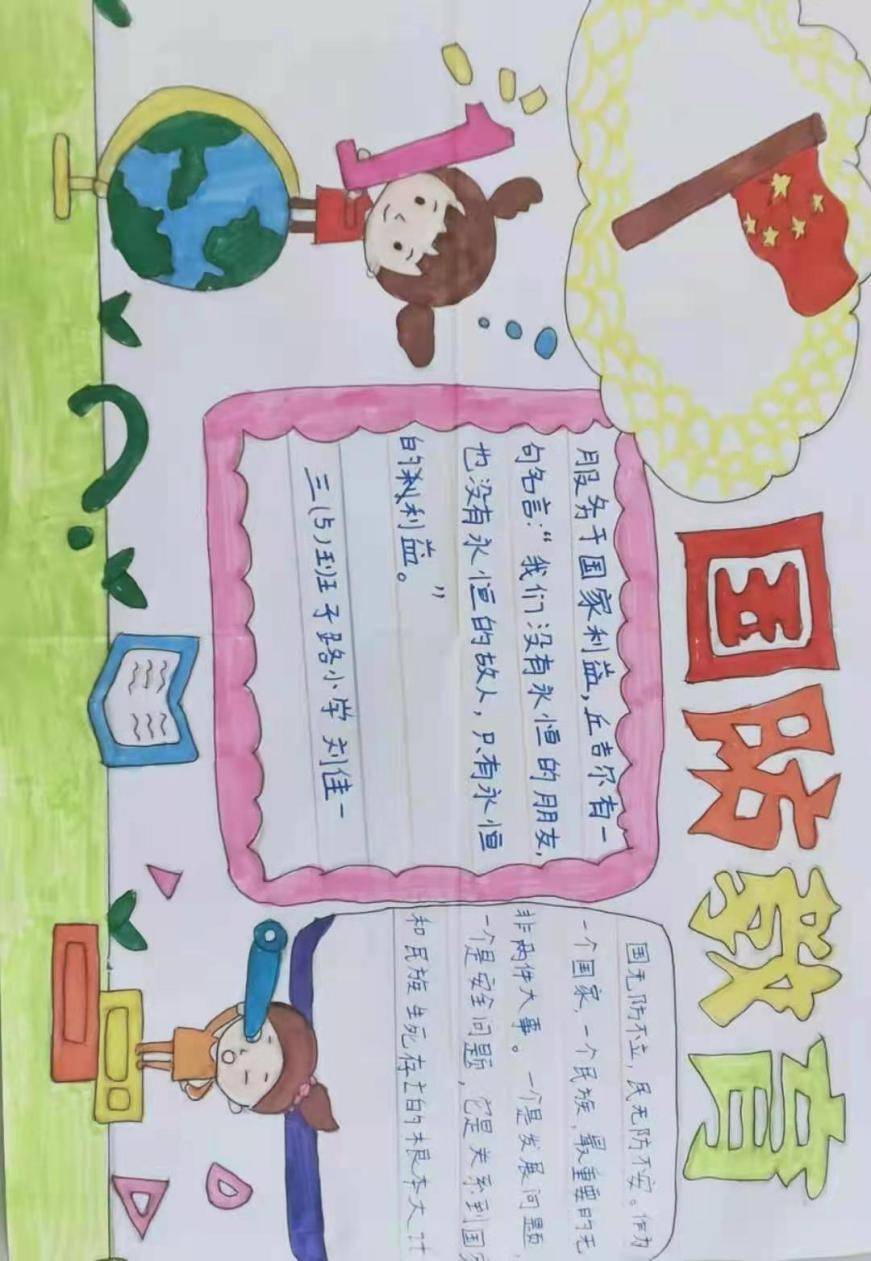 国防教育
服务于国家利益，丘吉尔有一
句名言：“我们没有永恒的朋友，
也没有永恒的敌人，只有永恒
的利益。”
三（5）班于路小学 刘佳一
国无防不立，民无防不安。作为
一个国家、一个民族，最重要的无
非两件大事。一个是发展问题，
一个是安全问题，它是关系到国家
和民族生死存亡的根本大计